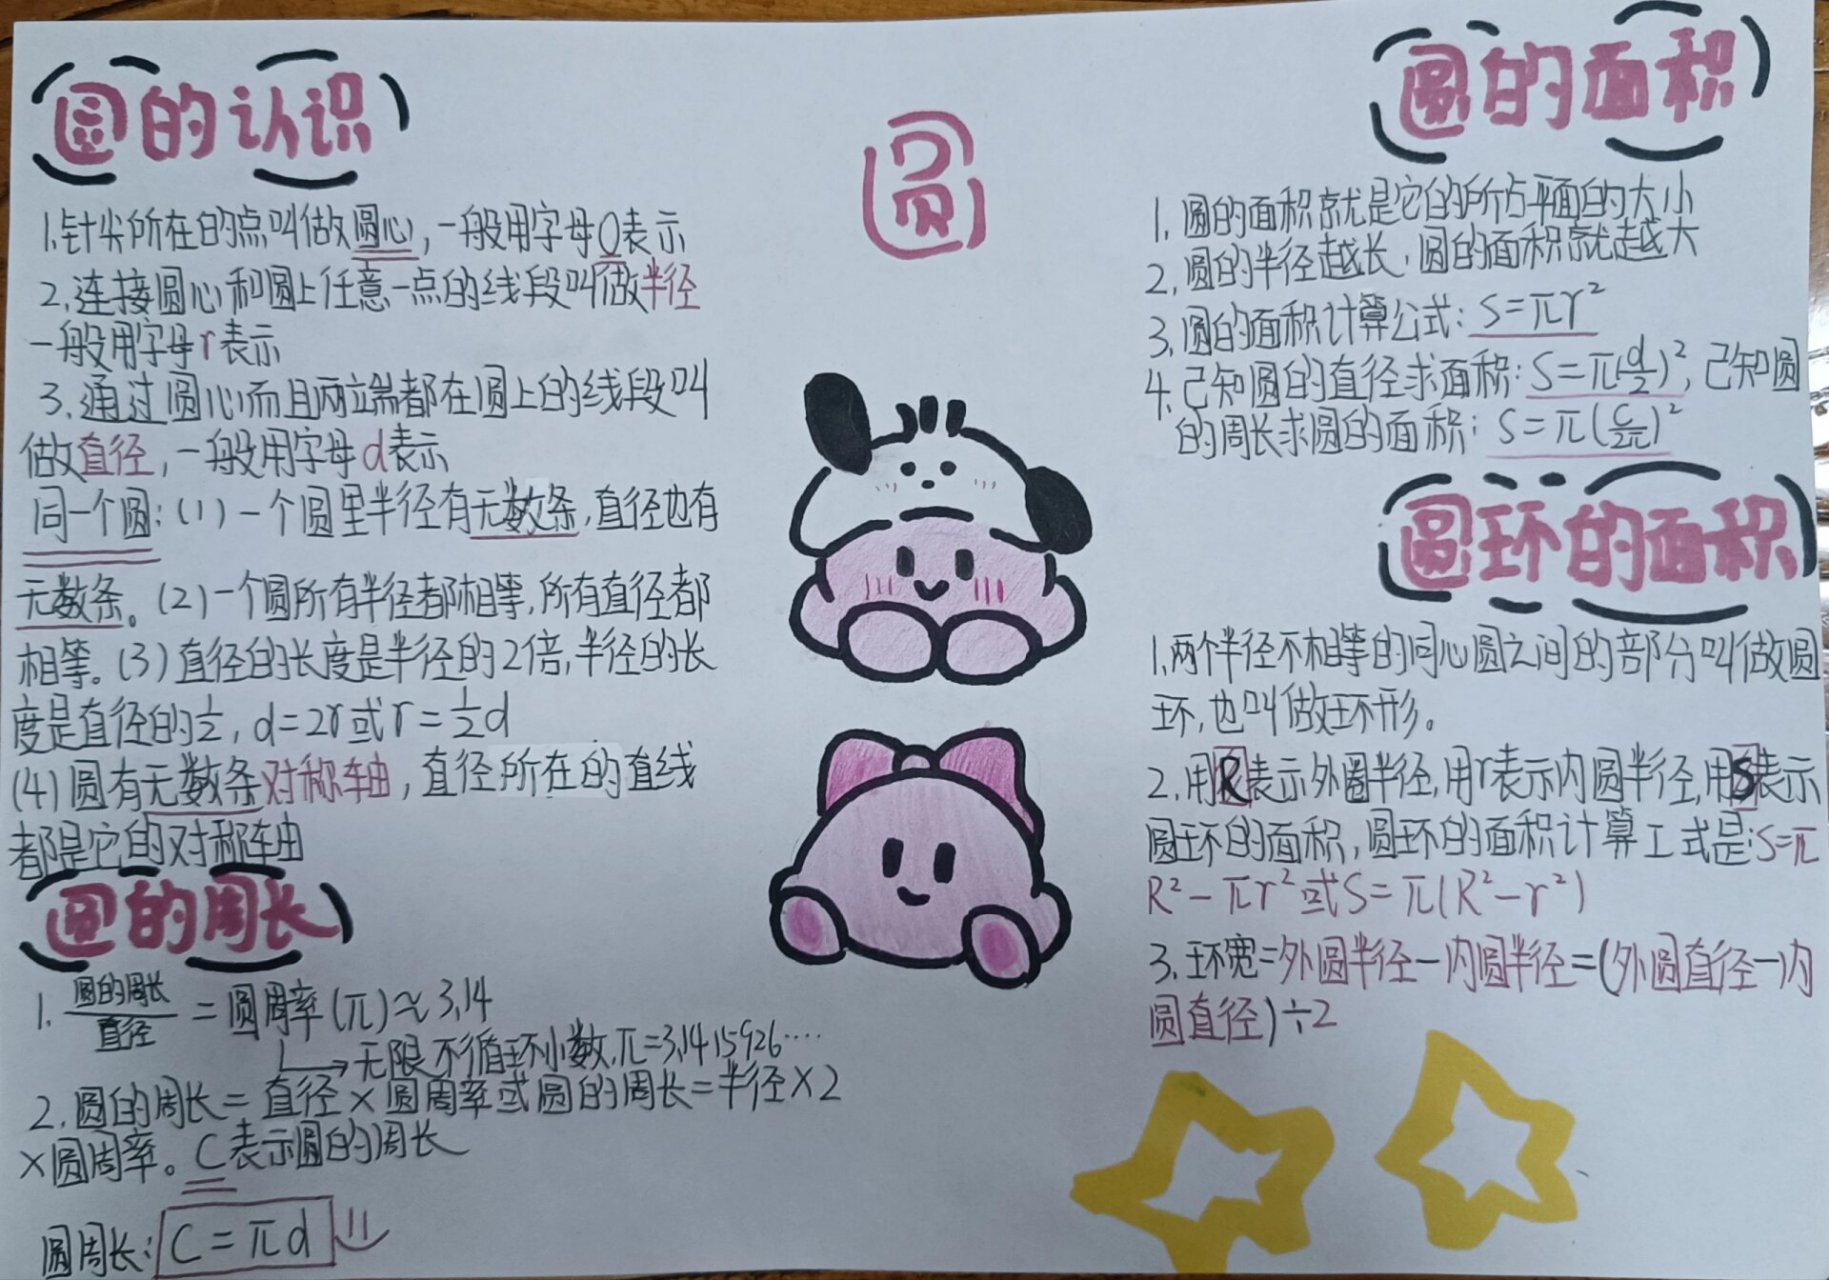 圆的认识
1.针尖所在的点叫做圆心,一般用字母O表示
2.连接圆心和圆上任意一点的线段叫做半径
一般用字母r表示
3.通过圆心而且两端都在圆上的线段叫
做直径,一般用字母d表示
同一个圆:(1)一个圆里半径有无数条,直径也有
无数条。(2)一个圆所有半径都相等,所有直径都
相等。(3)直径的长度是半径的2倍,半径的长
度是直径的1/2,d=2r或r=1/2d
(4)圆有无数条对称轴,直径所在的直线
都是它的对称轴
圆的周长
1. 圆的周长/直径=圆周率(π)≈3.14
→无限不循环小数,π=3.1415926····
2.圆的周长=直径×圆周率或圆的周长=半径×2
×圆周率。C表示圆的周长
圆周长:C=πd
圆
圆的面积
1.圆的面积就是它的所占平面的大小
2.圆的半径越长,圆的面积就越大
3.圆的面积计算公式:S=πr²
4.已知圆的直径求面积:S=π(d/2)²,已知圆
的周长求圆的面积:S=π(C/2π)²
圆环的面积
1.两个半径不相等的同心圆之间的部分叫做圆
环,也叫做环形。
2.用R表示外圈半径,用r表示内圆半径,用S表示
圆环的面积,圆环的面积计算工式是:S=π
R²-πr²或S=π(R²-r²)
3.环宽=外圆半径-内圆半径=(外圆直径-内
圆直径)÷2